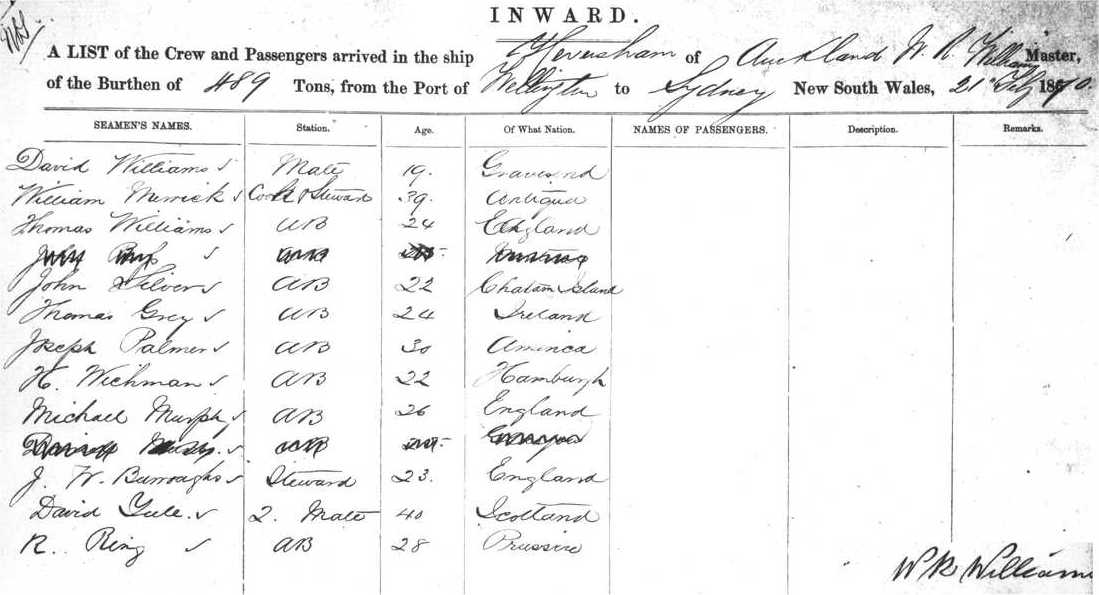 INWARD.
A LIST of the Crew and Passengers arrived in the ship Heversham of Auckland W. R. Williams Master,
of the Burthen of 489 Tons, from the Port of Wellington to Sydney New South Wales, 21st Feby 1870.
SEAMEN'S NAMES. Station. Age. Of What Nation. NAMES OF PASSENGERS. Description. Remarks.
David Williams Mate 19. Gravesend
William Merrick Cook & Steward 39. Antigua
Thomas Williams AB 24 England
John Silver AB 22 Chatam Island
Thomas Grey AB 24 Ireland
Joseph Palmer AB 30 America
H. Wichman AB 22 Hamburgh
Michael Murphy AB 26 England
J. W. Burroughs Steward 23. England
David Yule 2. Mate 40 Scotland
R. Ring AB 28 Prussia
W R Williams